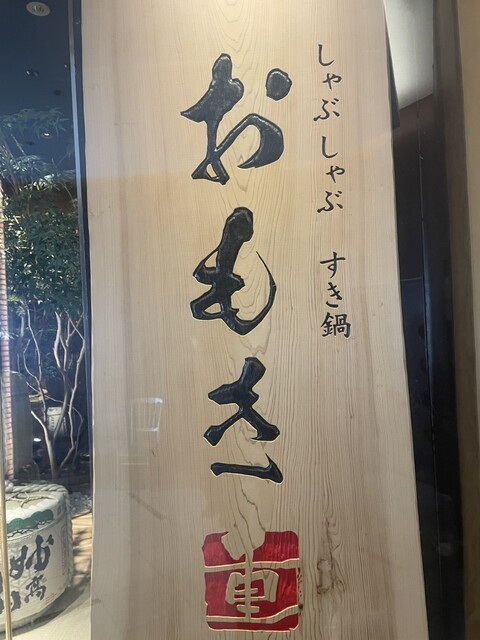 しゃぶしゃぶ すき鍋
おもき
重
高